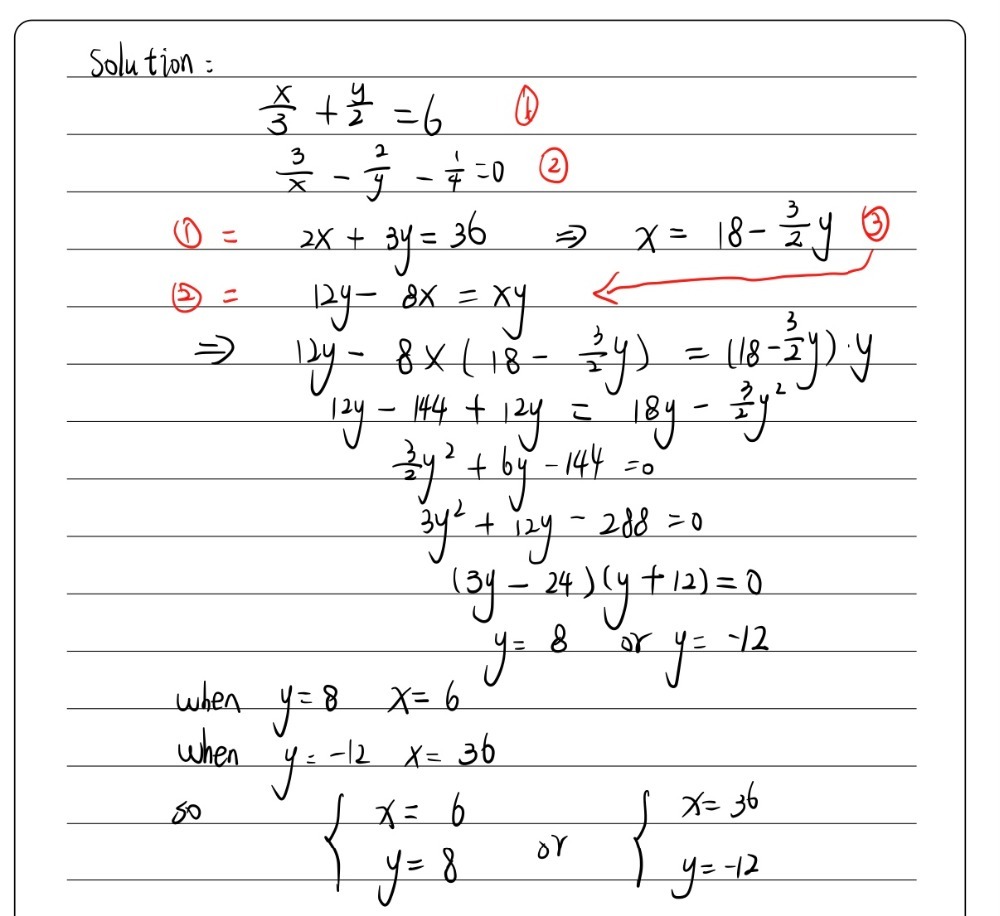 Solution:
x/3 + y/2 = 6 ①
3/x - 2/y - 1/4 = 0 ②
① = 2x + 3y = 36 ⇒ x = 18 - 3/2 y ③
② = 12y - 8x = xy
⇒ 12y - 8 × (18 - 3/2 y) = (18 - 3/2 y) · y
12y - 144 + 12y = 18y - 3/2 y²
3/2 y² + 6y - 144 = 0
3y² + 12y - 288 = 0
(3y - 24)(y + 12) = 0
y = 8 or y = -12
when y = 8 x = 6
when y = -12 x = 36
so { x = 6 y = 8 or { x = 36 y = -12